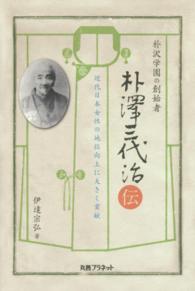 朴沢学園の創始者
朴澤三代治伝
近代日本女性の地位向上に大きく貢献
伊達宗弘 著
丸善プラネット